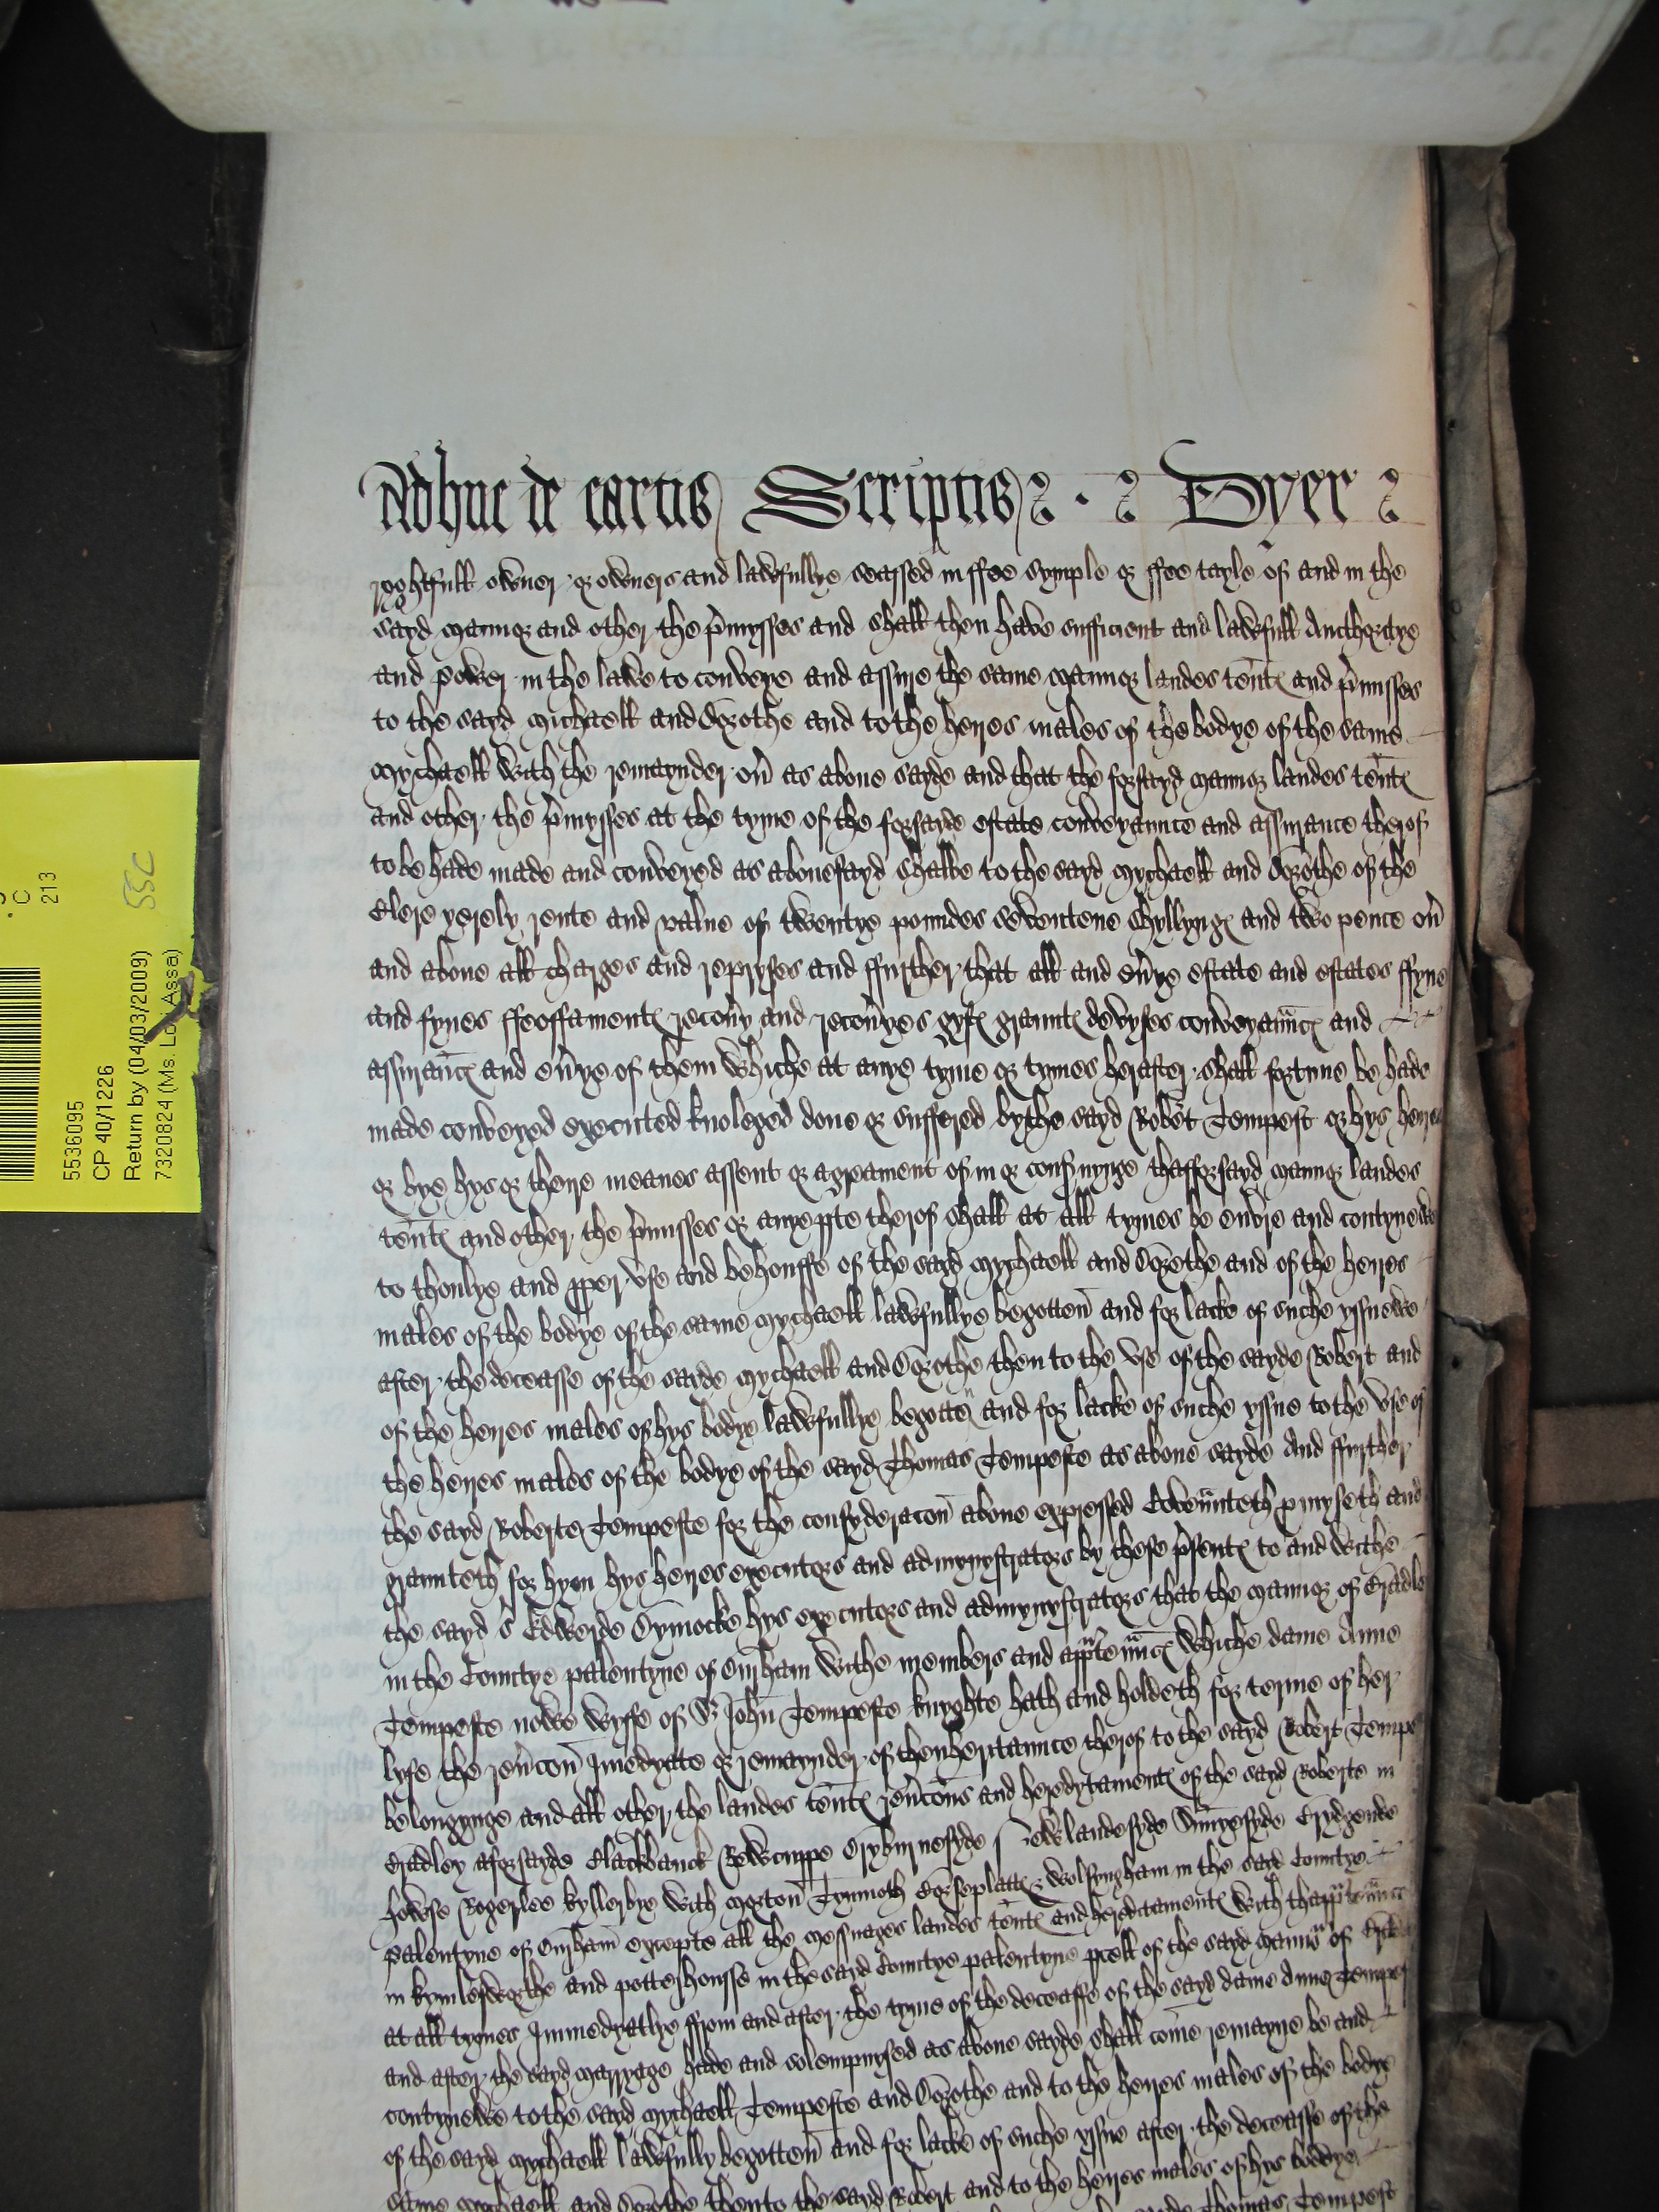 Adhuc de cartis Scriptis . Dyer
ryghtfull owner or owners and lawfullye seassed in ffee symple or ffee tayle of and in the
sayd mannor and other the p̄mysses and shall then have sufficient and lawfull Aucthorytye
and power in the lawe to conveye and assure the same mannor landes teñtꝭ and p̄misses
to the sayd michaell and Dorothe and to the heires males of the bodye of the same
mychaell with the remaynder ov̄ as above sayde and that the forsayd mannor landes teñtꝭ
and other the p̄mysses at the tyme of the forsayde estate conveyaunce and assurance therof
to be hade made and conveyed as abovesayd shalbe to the sayd mychaell and Dorothe of the
Clere yerely rente and value of twentye poundes seventene shyllyngꝭ and two pence ov̄
and above all charges and repryses and ffurther that all and ev̄ye estate and estates ffyne
and fynes ffeoffamentꝭ recov̄y and recov̄yes gyftꝭ grauntꝭ devyses conveyauncꝭ and
assurancꝭ and ev̄ye of them whiche at anye tyme or tymes herafter shall fortune be hade
made conveyed executed knoleged done or suffered by the sayd Rob̄t Tempest or hys heires
or bye hys or theire meanes assent or agreament of in or consnynge thafforsayd mannor landes
teñtꝭ and other the p̄misses or anye pte therof shall at all tymes be enure and contynewe
to thonlye and pper use and behouffe of the sayd mychaell and Dorothe and of the heires
males of the bodye of the same mychaell lawfullye begotten and for lacke of suche yssuewe
after the deceasse of the sayde mychaell and Dorothe then to the use of the sayde Robert and
of the heires males of hys bodye lawfullye begotten and for lacke of suche yssue to the use of
the heires males of the bodye of the sayd Thomas Tempeste as above sayde And ffurther
the sayd Roberte Tempeste for the consyderacon above expressed Covenñteth pmyseth and
graunteth for hym hys heires executors and admynystrators by these p̄sentꝭ to and withe
the sayd S̄ Edwerde Dymocke hys executors and admynystrators that the mannor of Bradle
in the Countye palentyne of Durham withe members and apptennꝭ whiche dame Anne
Tempeste nowe wyffe of Sr John Tempeste knyghte hath and holdeth for terme of her
lyfe the rev̄con Imedyate or remaynder of thenherytaunce therof to the sayd Robert Tempe
belongynge and all other the landes teñtꝭ rev̄cons and heredytamentꝭ of the sayd Roberte in
Bradley aforsayde Blackbanck Bryburnesyde Newlandesyde Brydgende
Rogerlee kyllerbye with morton Tynmoth wolsyngham in the sayd Countye
palentyne of Durham excepte all the messuages landes teñtꝭ and heredytamentꝭ with thapptennꝭ
in kymlesworthe and potterhousse in the sayd Countye palentyne pcell of the sayd mannor of
at all tymes Immedyatlye ffrom and after the tyme of the deceasse of the sayd dame Anne Tempest
and after the sayd marryage hade and solempnysed as above sayde shall come remayne be and
contynewe to the sayd mychaell Tempeste and Dorothe and to the heires males of the bodye
of the sayd mychaell lawfully begotten and for lacke of suche yssue after the deceasse of the
same mychaell and Dorothe then to the sayd Robert and to the heires males of hys bodye
Thomas Tempest
C
213
55C
5536095
CP 40/1226
Return by (04/03/2009)
7320824 (Ms. Assa)